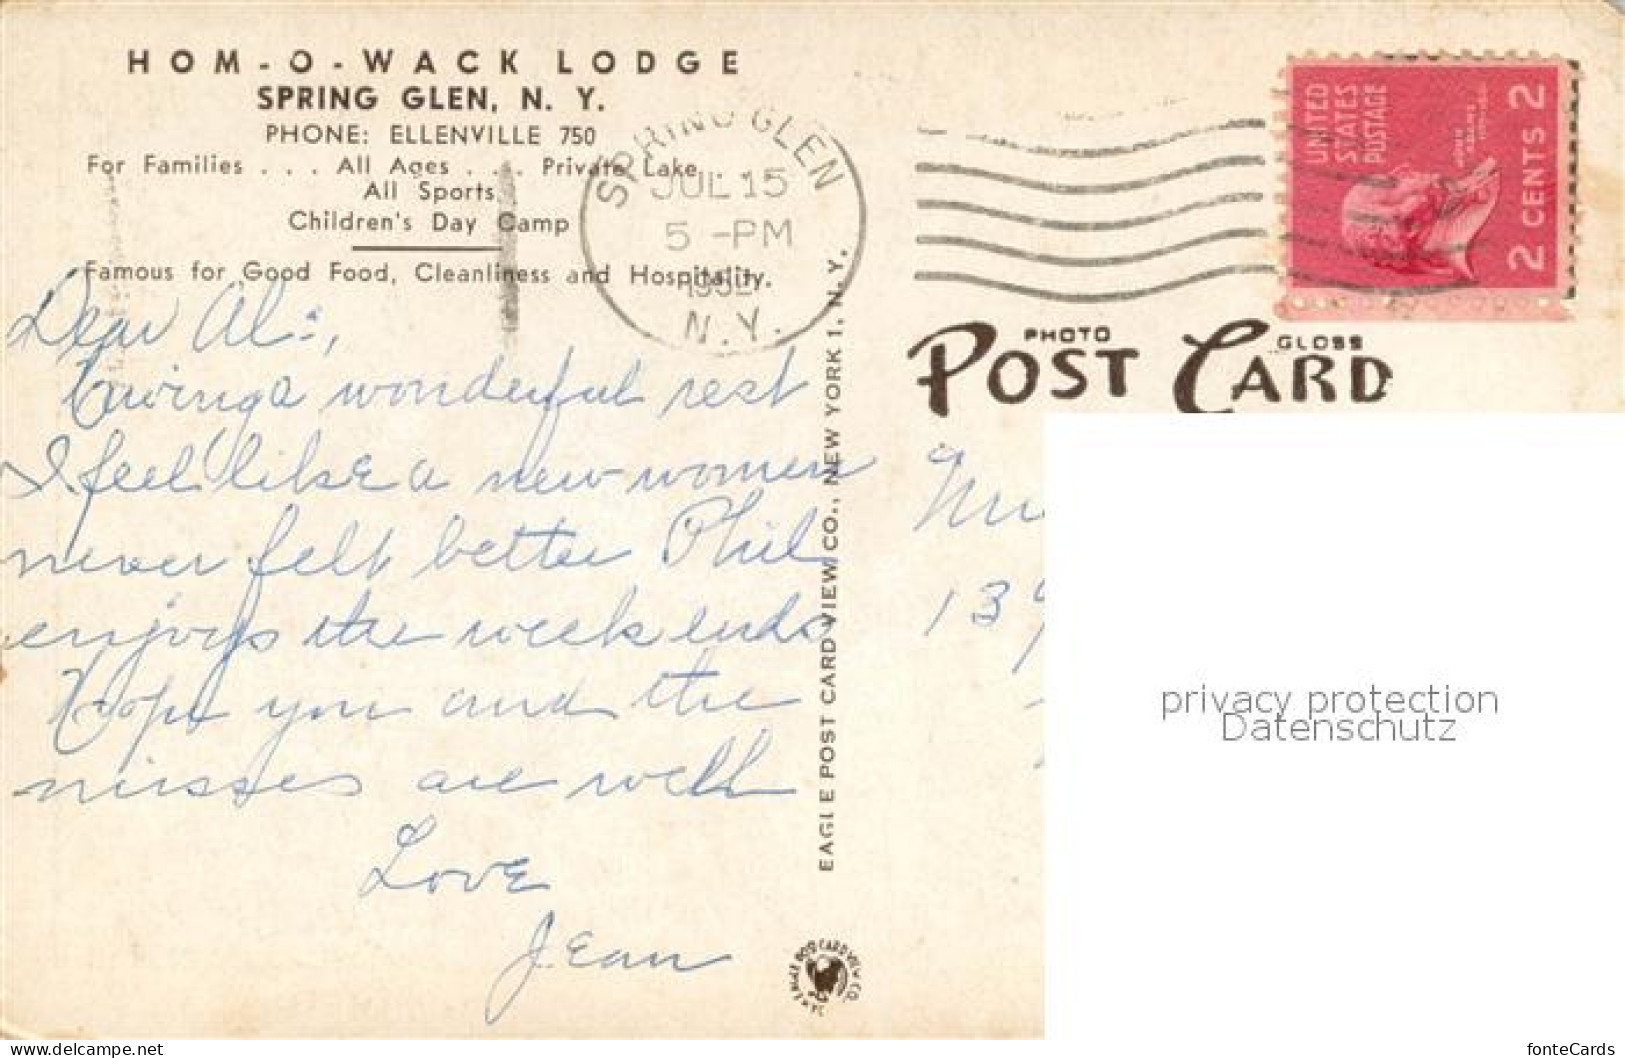 HOM-O-WACK LODGE
SPRING GLEN, N. Y.
PHONE: ELLENVILLE 750
For Families . . . All Ages . . . Private Lake . . .
All Sports
Children's Day Camp
Famous for Good Food, Cleanliness and Hospitality.
SPRING GLEN
JUL 15
5 -PM
N.Y.
UNITED
STATES
POSTAGE
JOHN
ADAMS
2 CENTS 2
PHOTO GLOSS
POST CARD
Dear Al:,
a wonderful rest
I feel like a new women
never felt better Phil
enjoys the week ends
Hope you and the
misses are well
Love
Jean
EAGLE POST CARD VIEW CO., NEW YORK 1, N. Y.
EAGLE POST CARD VIEW CO.
13
privacy protection
Datenschutz
www.delcampe.net
fonteCards